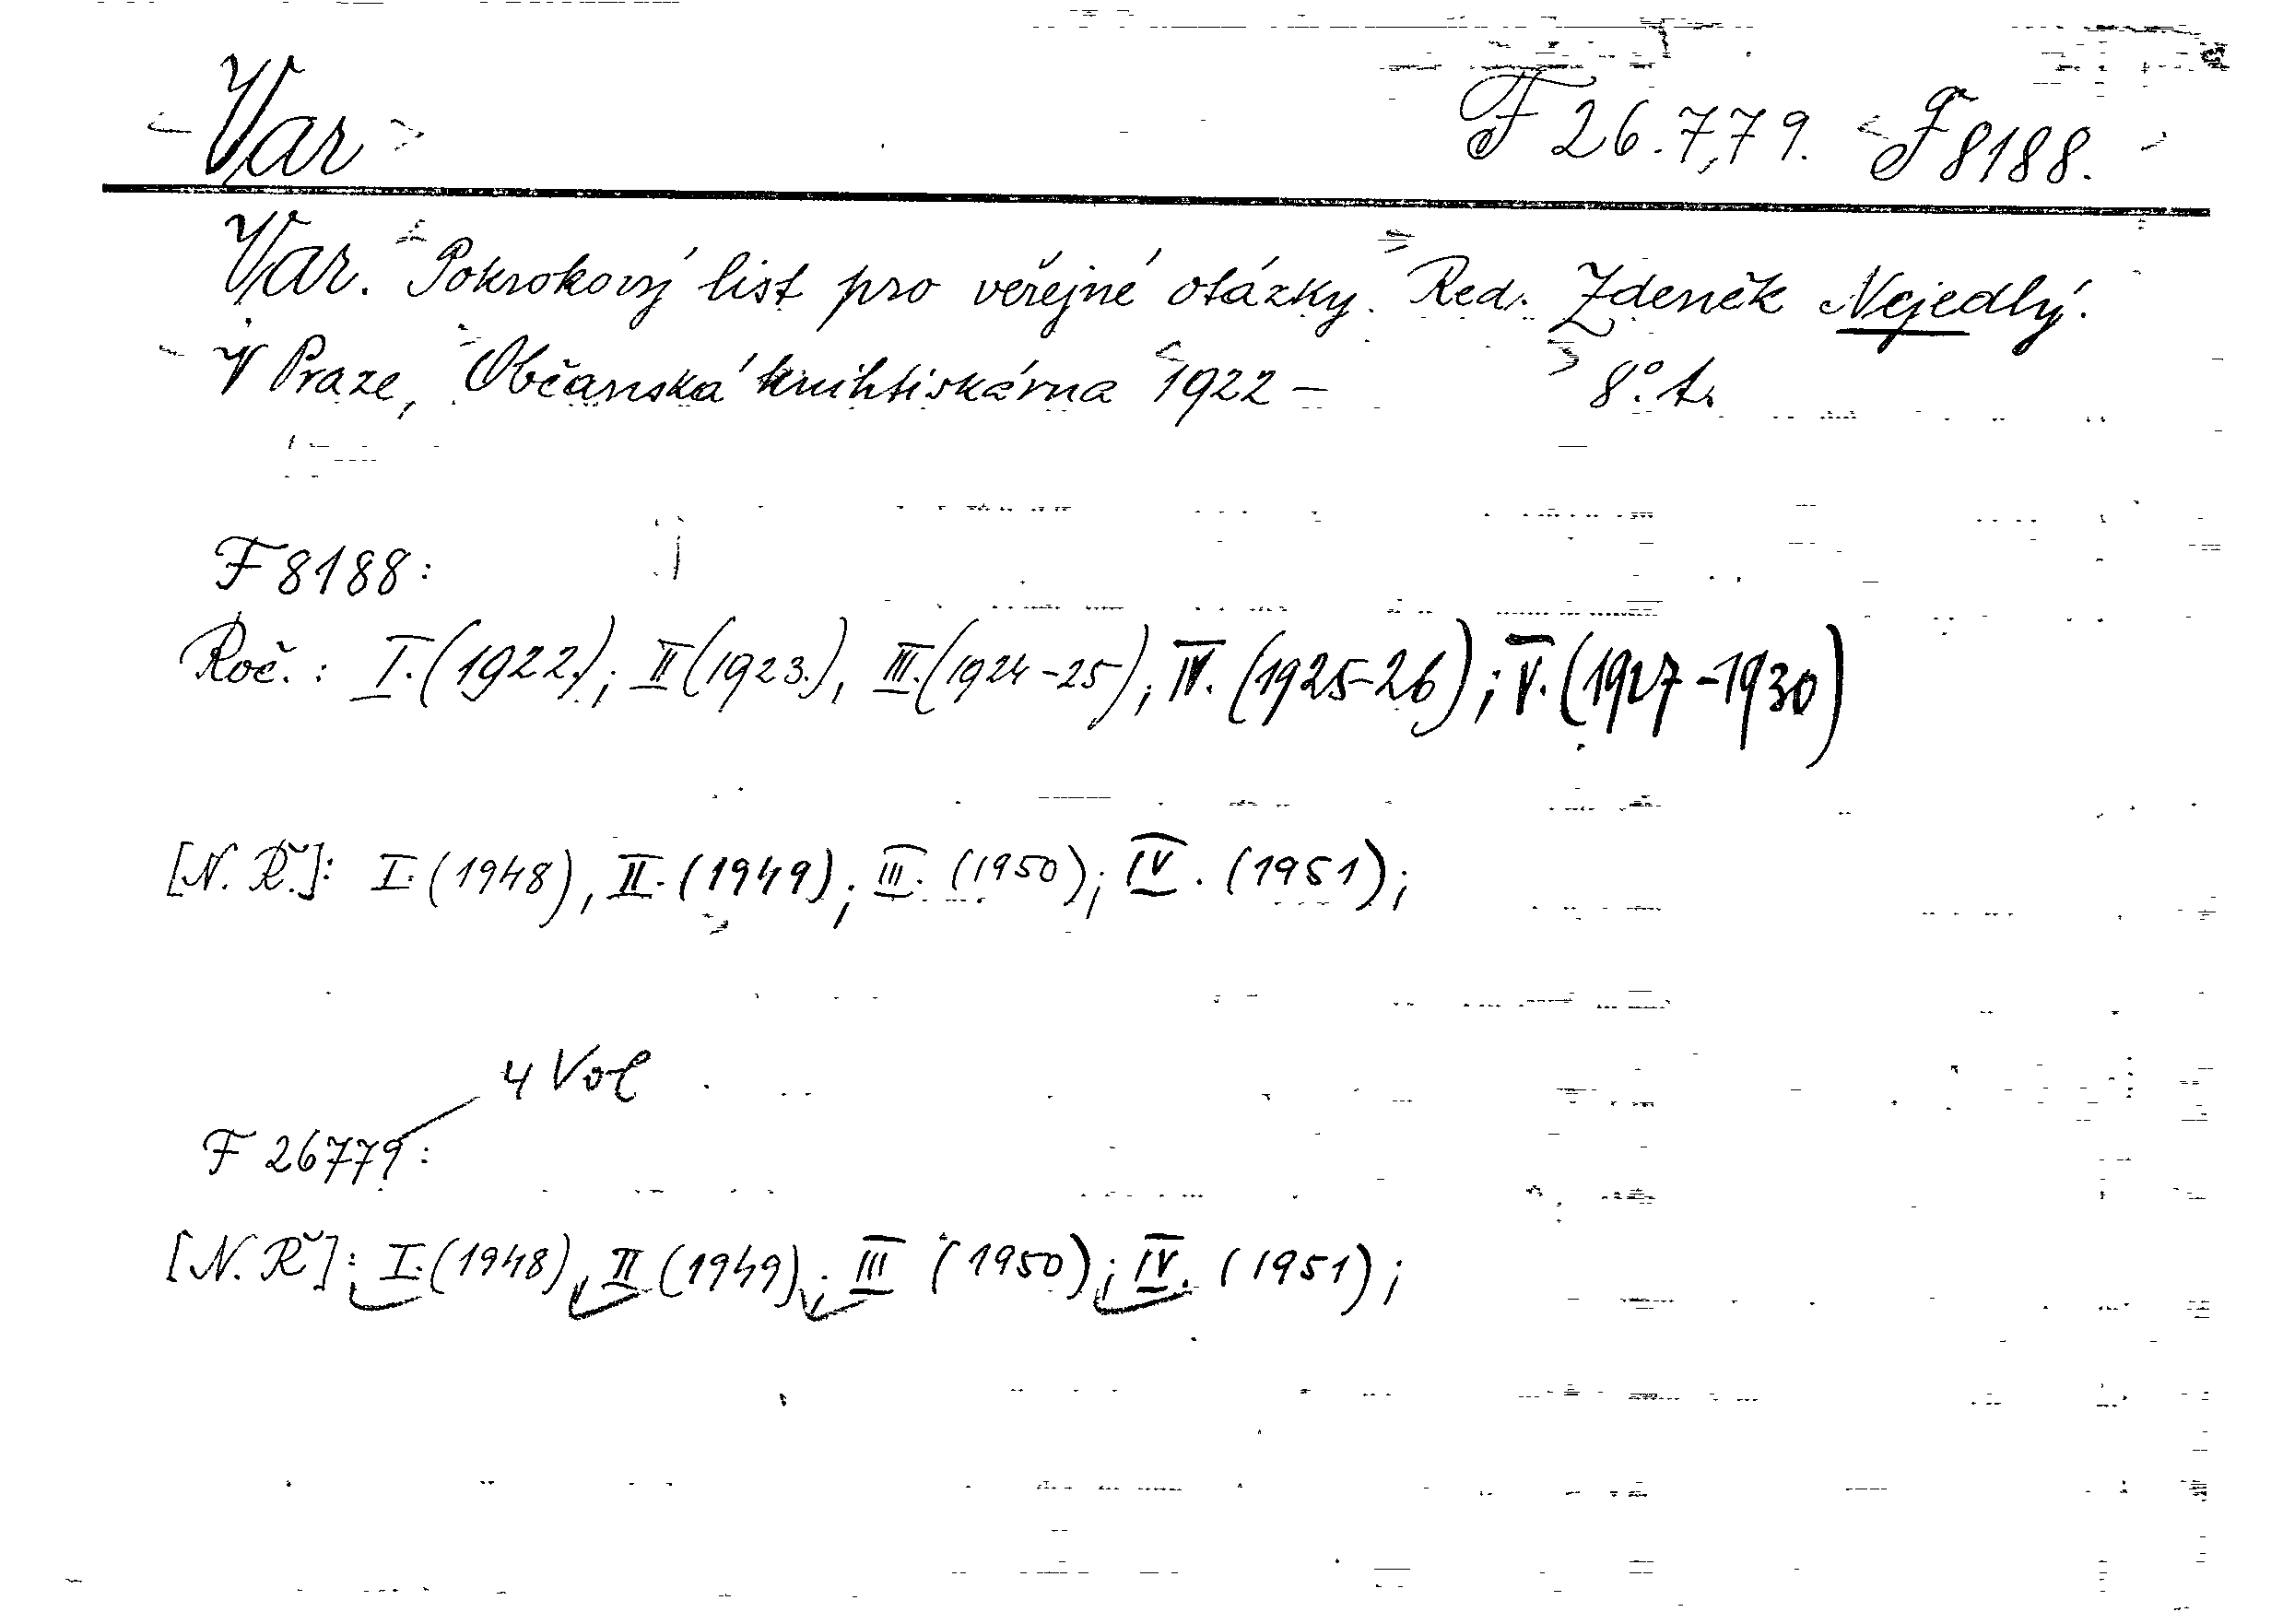 Var F 26.7,79. F 8188.
Var. Pokrokový list pro veřejné otázky. Red. Zdeněk Nejedlý.
V Praze, Občanská knihtiskárna 1922 — 8°.
F 8188:
Roč. : I. (1922.); II (1923.), III. (1924-25); IV. (1925-26); V. (1927-1930)
[N. Ř.]: I. (1948), II. (1949); III. (1950); IV. (1951);
4 Vol
F 26779:
[N. Ř]: I. (1948), II (1949); III (1950); IV. (1951);